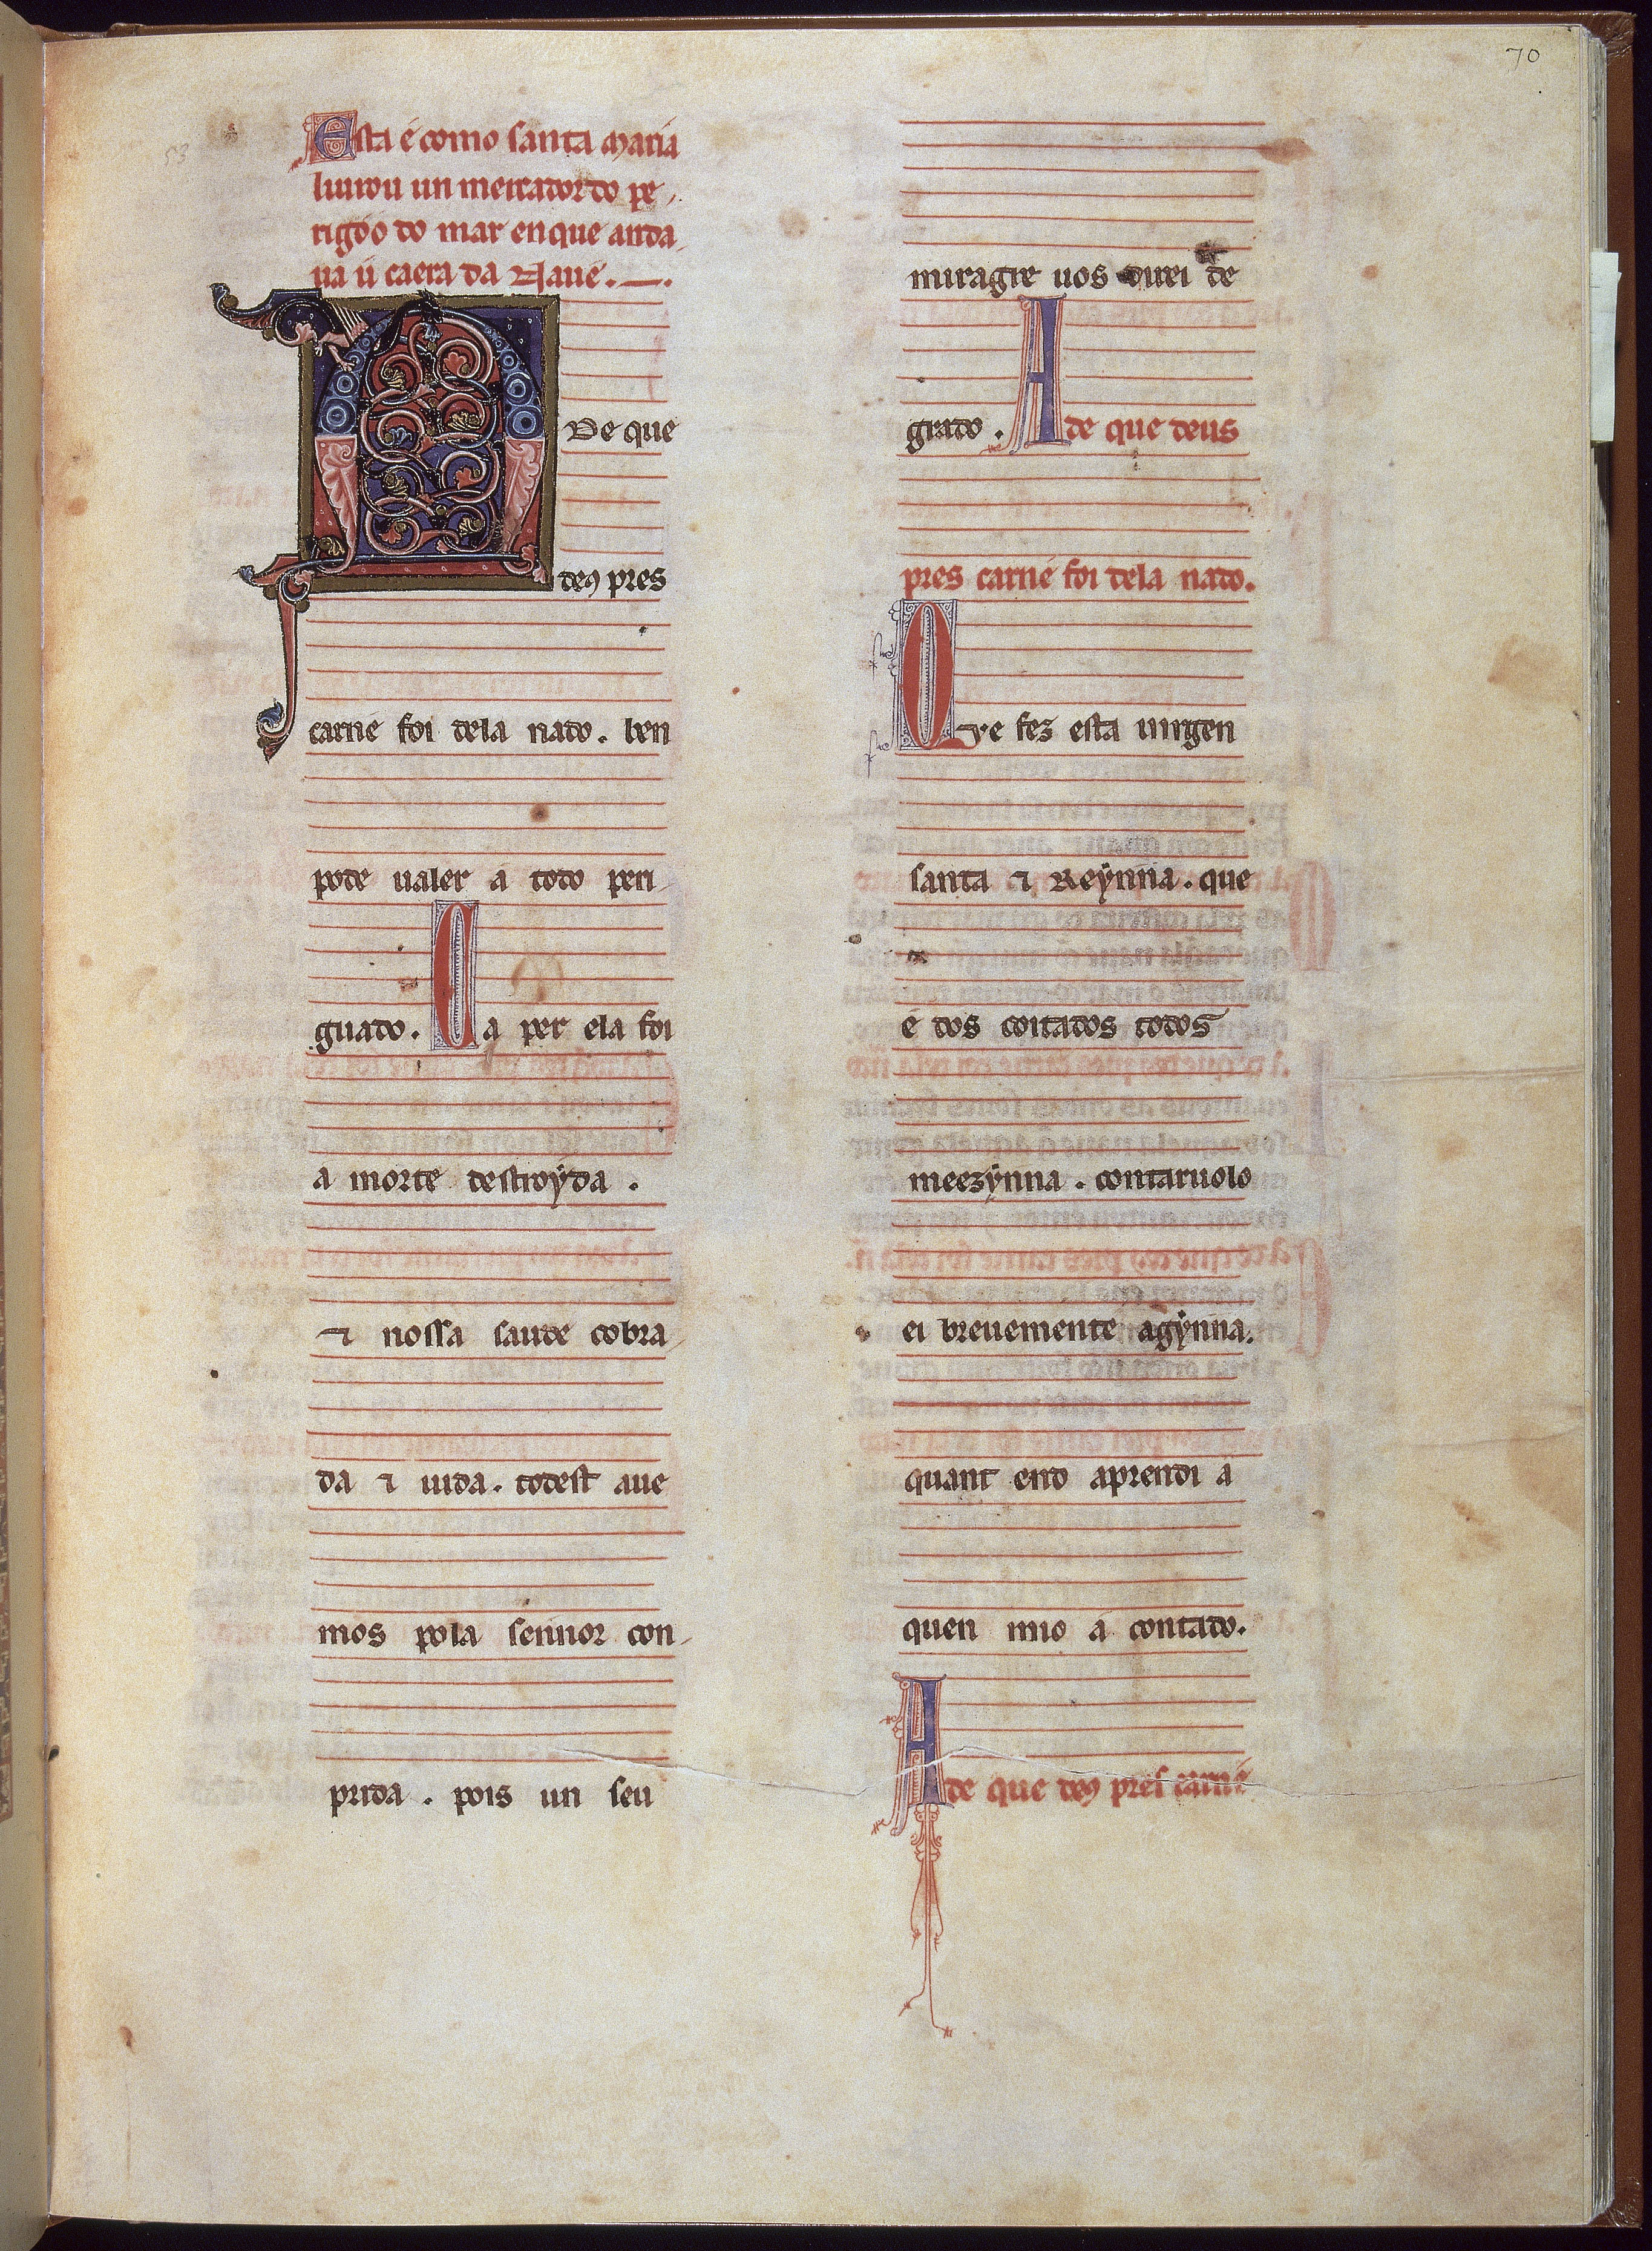 70
53
Esta é como santa maria
liurou un mercador do pe
rigóo do mar en que anda
ua ú caera da Naue.
A De que
deꝯ pres
carne foi dela nado. ben
pode ualer á todo peri
guado. Ca per ela foi
a morte destroyda.
⁊ nossa saude cobra
da ⁊ uida. todest aue
mos pola sennor con
prida. pois un seu
miragre uos direi de
grado. A de que deus
pres carne foi dela nado.
Que fez esta uirgen
santa ⁊ Reynna. que
é dos coitados todos
meezynna. contaruolo
ei breuemente agynna.
quant end aprendi a
quen mio á contado.
A de que deꝯ pres carne